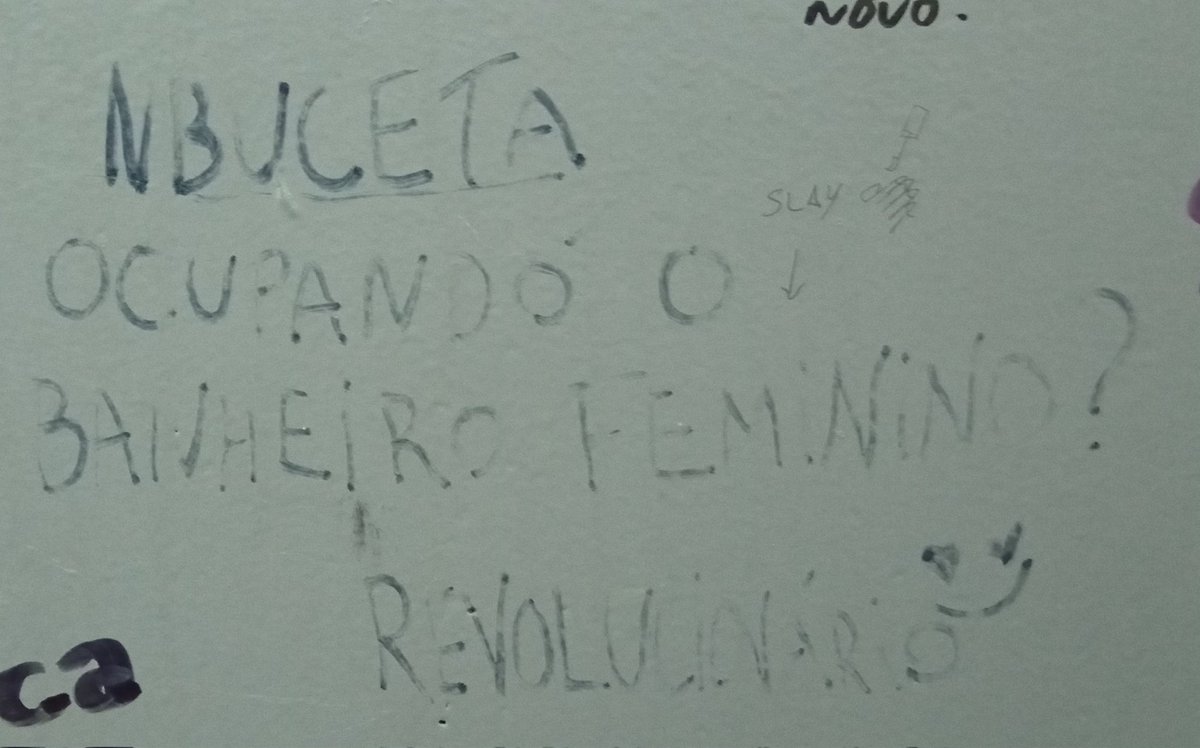 NOVO.
NBUCETA
SLAY
OCUPANDO O
BANHEIRO FEMININO?
REVOLUCINÁRIO
c.a